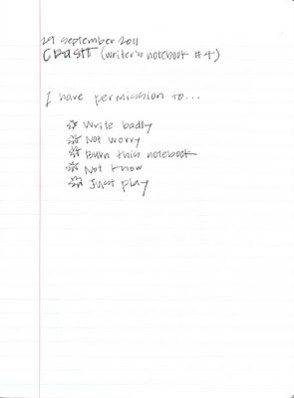 29 September 2011
CRASH (writer's notebook #4)
I have permission to...
Write badly
Not worry
Burn this notebook
Not know
Just play